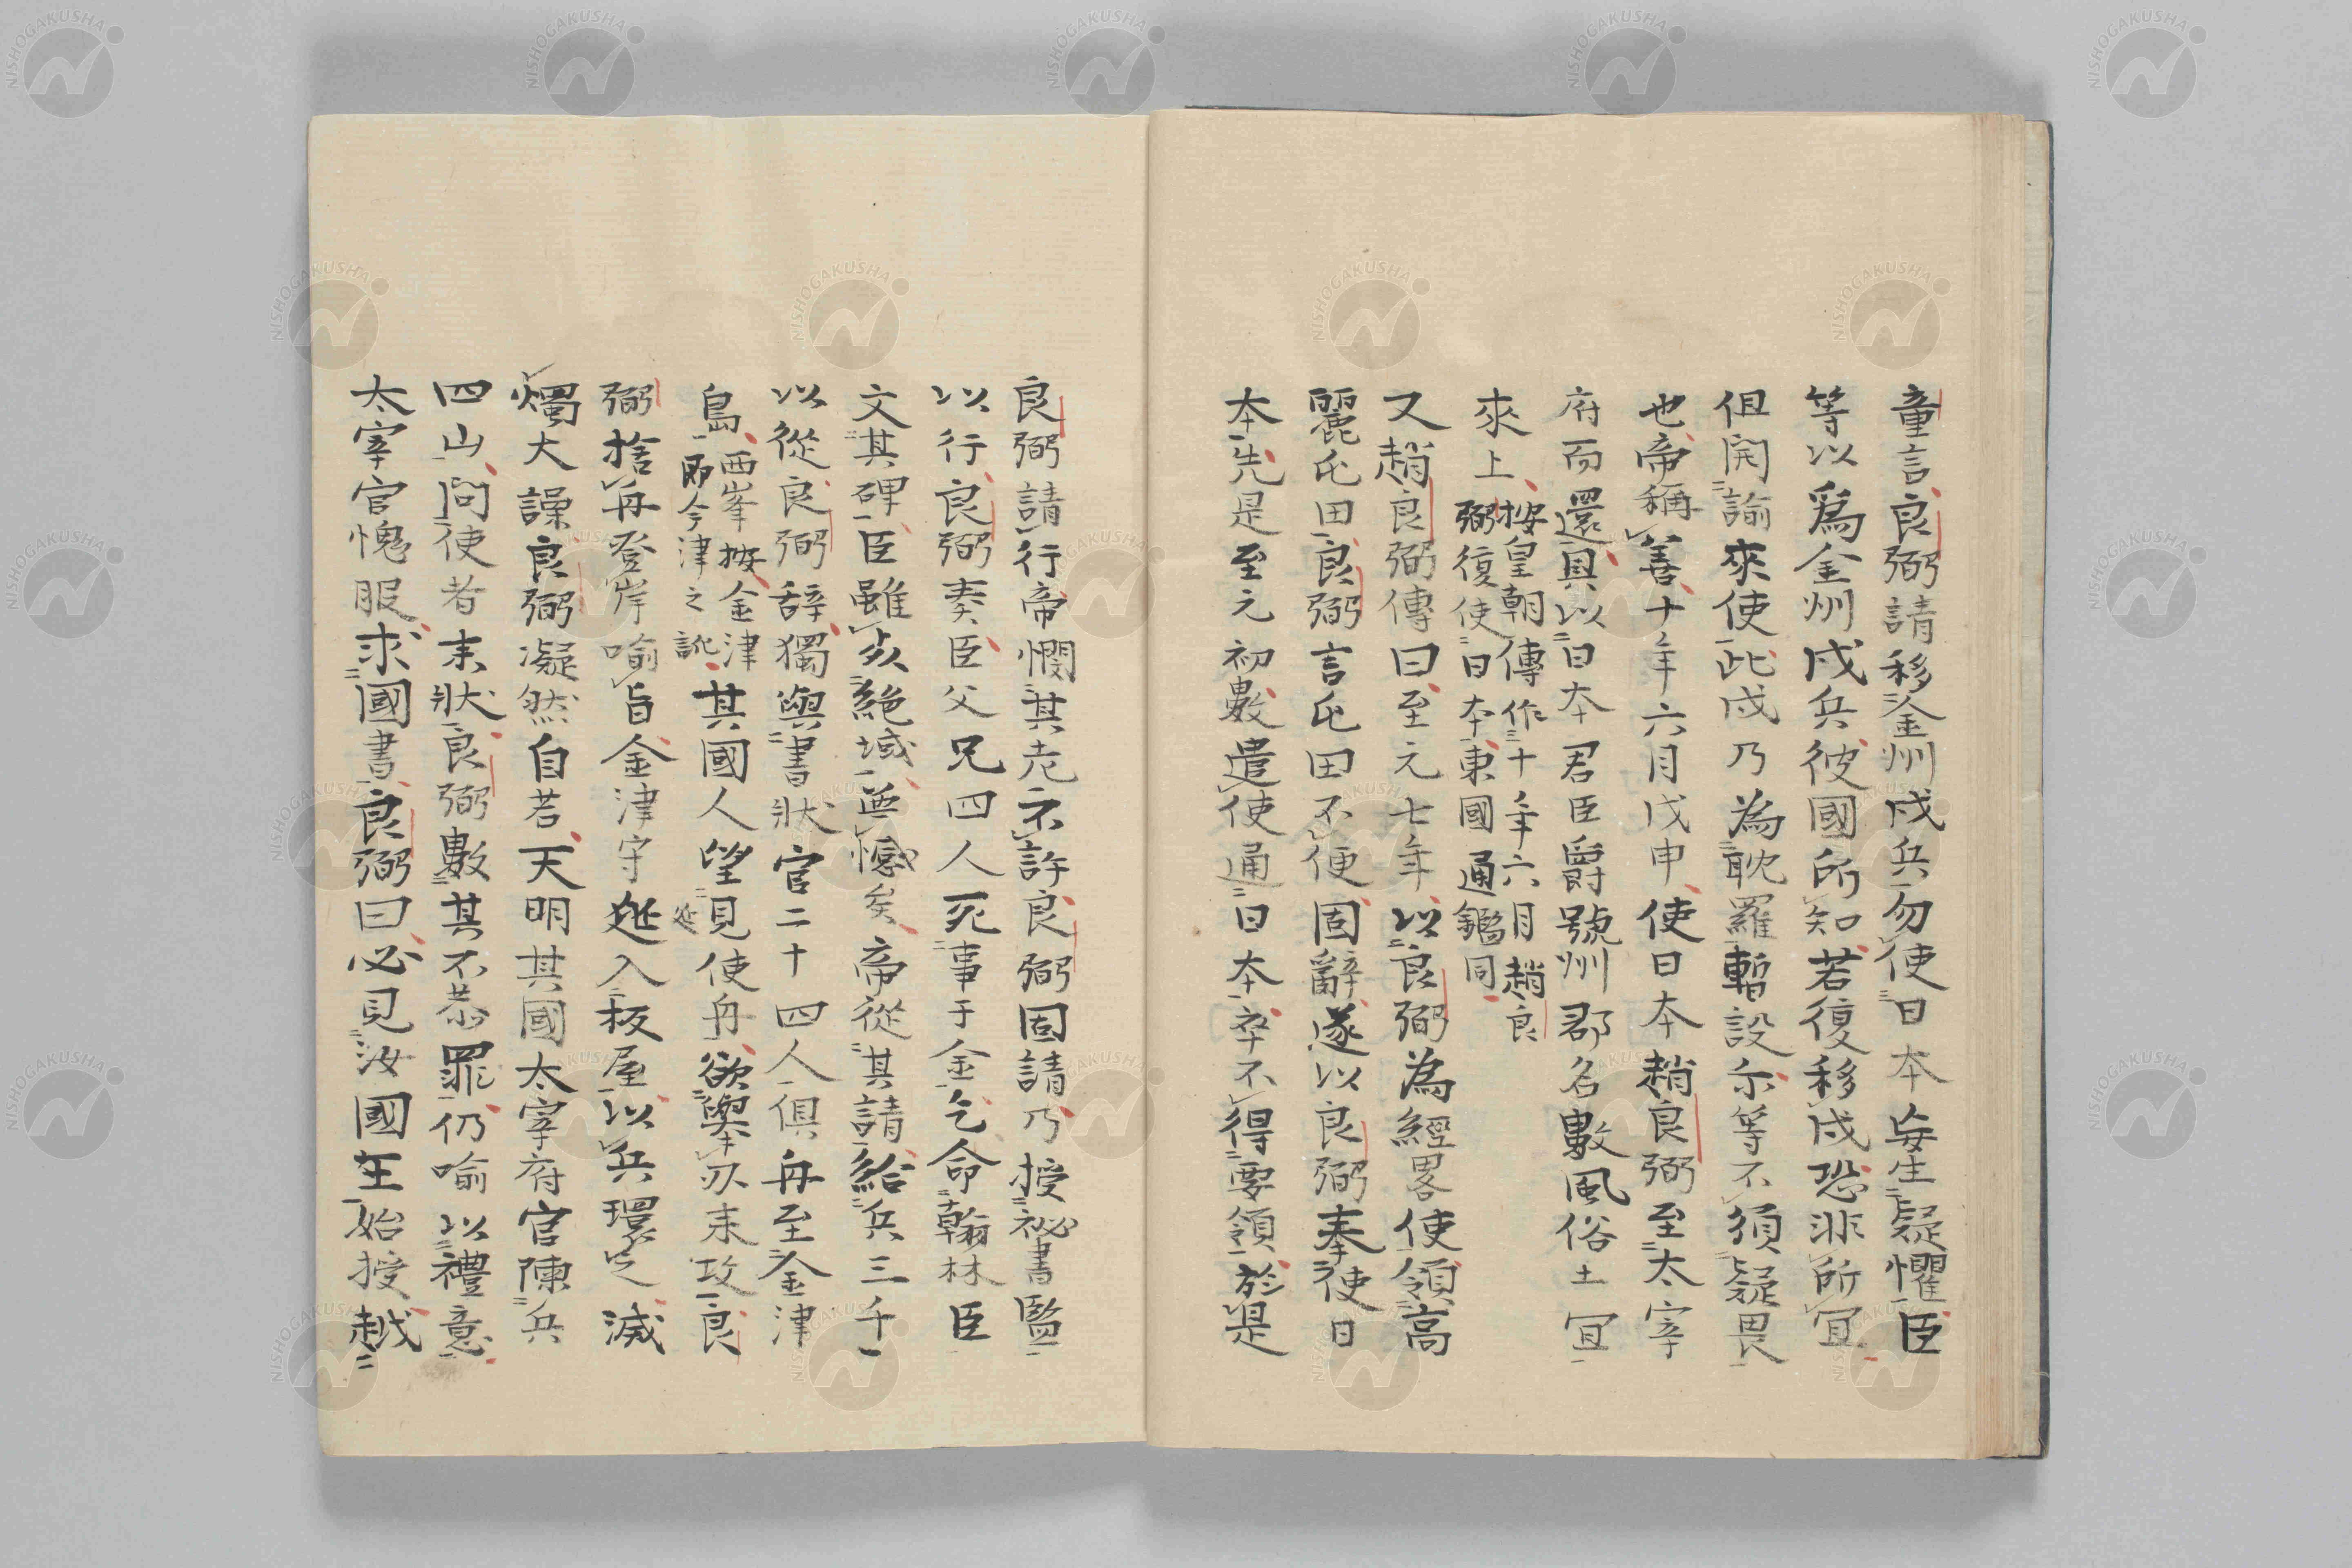 童言良弼請移金州戍兵勿使日本妄生疑懼臣
等以爲金州戍兵彼國所知若復移戍恐非所宜
但開諭來使此戍乃為耽羅暫設尓等不須疑畏
也帝稱善十年六月戊申使日本趙良弼至太宰
府而還具以日本君臣爵號州郡名數風俗土宜
來上
按皇朝傳作十年六月趙良
弼復使日本東國通鑑同
又趙良弼傳曰至元七年以良弼為經畧使領高
麗屯田良弼言屯田不便固辭遂以良弼奉使日
本先是至元初數遣使通日本卒不得要領於是
良弼請行帝憫其老不許良弼固請乃授祕書監
以行良弼奏臣父兄四人死事于金乞命翰林臣
文其碑臣雖死絶域無憾矣帝從其請給兵三千
以從良弼辞獨與書狀官二十四人俱舟至金津
島
西峯按金津
即今津之訛
其國人望見使舟欲舉刃来攻良
弼捨舟登岸喻旨金津守延入板屋以兵環之滅
延
燭大譟良弼凝然自若天明其國太宰府官陳兵
四山問使者来狀良弼數其不恭罪仍喻以禮意
太宰官愧服求國書良弼曰必見汝國王始授越
NISHOGAKUSHA